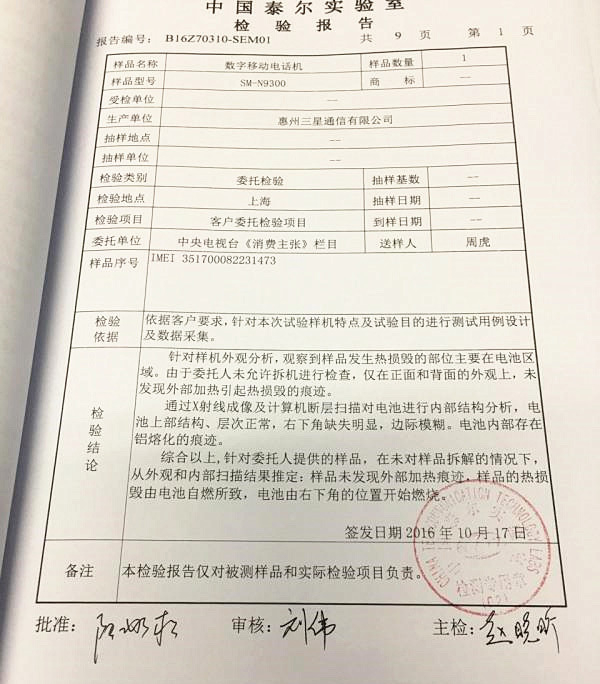 中国泰尔实验室
检 验 报 告
报告编号: B16Z70310-SEM01 共 9 页 第 1 页
样品名称 数字移动电话机 样品数量 1
样品型号 SM-N9300 商 标 --
受检单位 --
生产单位 惠州三星通信有限公司
抽样地点 --
抽样单位 --
检验类别 委托检验 抽样基数 --
检验地点 上海 抽样日期 --
检验项目 客户委托检验项目 到样日期 --
委托单位 中央电视台《消费主张》栏目 送样人 周虎
样品序号 IMEI 351700082231473
检验依据 依据客户要求,针对本次试验样机特点及试验目的进行测试用例设计
及数据采集。
检验结论
针对样机外观分析,观察到样品发生热损毁的部位主要在电池区
域。由于委托人未允许拆机进行检查,仅在正面和背面的外观上,未
发现外部加热引起热损毁的痕迹。
通过X射线成像及计算机断层扫描对电池进行内部结构分析,电
池上部结构、层次正常,右下角缺失明显,边际模糊。电池内部存在
铝熔化的痕迹。
综合以上,针对委托人提供的样品,在未对样品拆解的情况下,
从外观和内部扫描结果推定:样品未发现外部加热痕迹,样品的热损
毁由电池自燃所致,电池由右下角的位置开始燃烧。
签发日期 2016 年 10 月 17 日
备注 本检验报告仅对被测样品和实际检验项目负责。
批准: 审核: 刘伟 主检: 赵晓昕